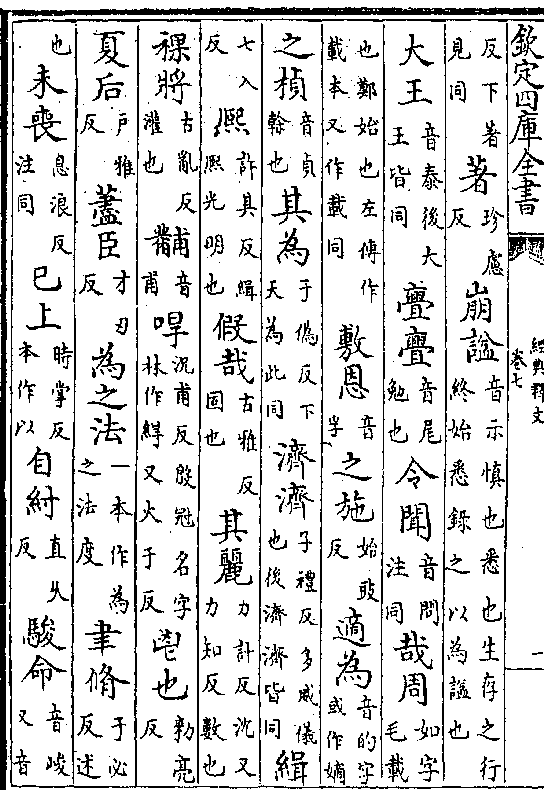 欽定四庫全書 經典釋文 卷七 一
反下著見同 著 珍慮反 崩謚 音示慎也悉也生存之行終始悉錄之以為謚也
大王 音泰後大王皆同 亹亹 音尾勉也 令聞 音問注同 哉周 如字毛載
也鄭始也左傳作載本又作載同 敷恩 音孚 之施 始豉反 適為 音的字或作嫡
之楨 音貞榦也 其為 于偽反下天為此同 濟濟 子禮反多威儀也後濟濟皆同 緝
七入反 熙 許其反緝熙光明也 假哉 古雅反固也 其麗 力計反沈又力知反數也
祼將 古亂反灌也 黼 音甫 冔 況甫反殷冠名字林作又火于反 鬯也 勑亮反
夏后 戶雅反 藎臣 才刃反 為之法 一本作為之法度 聿脩 于必反述
也 未喪 息浪反注同 已上 時掌反本作以 自紂 直久反 駿命 音峻又音